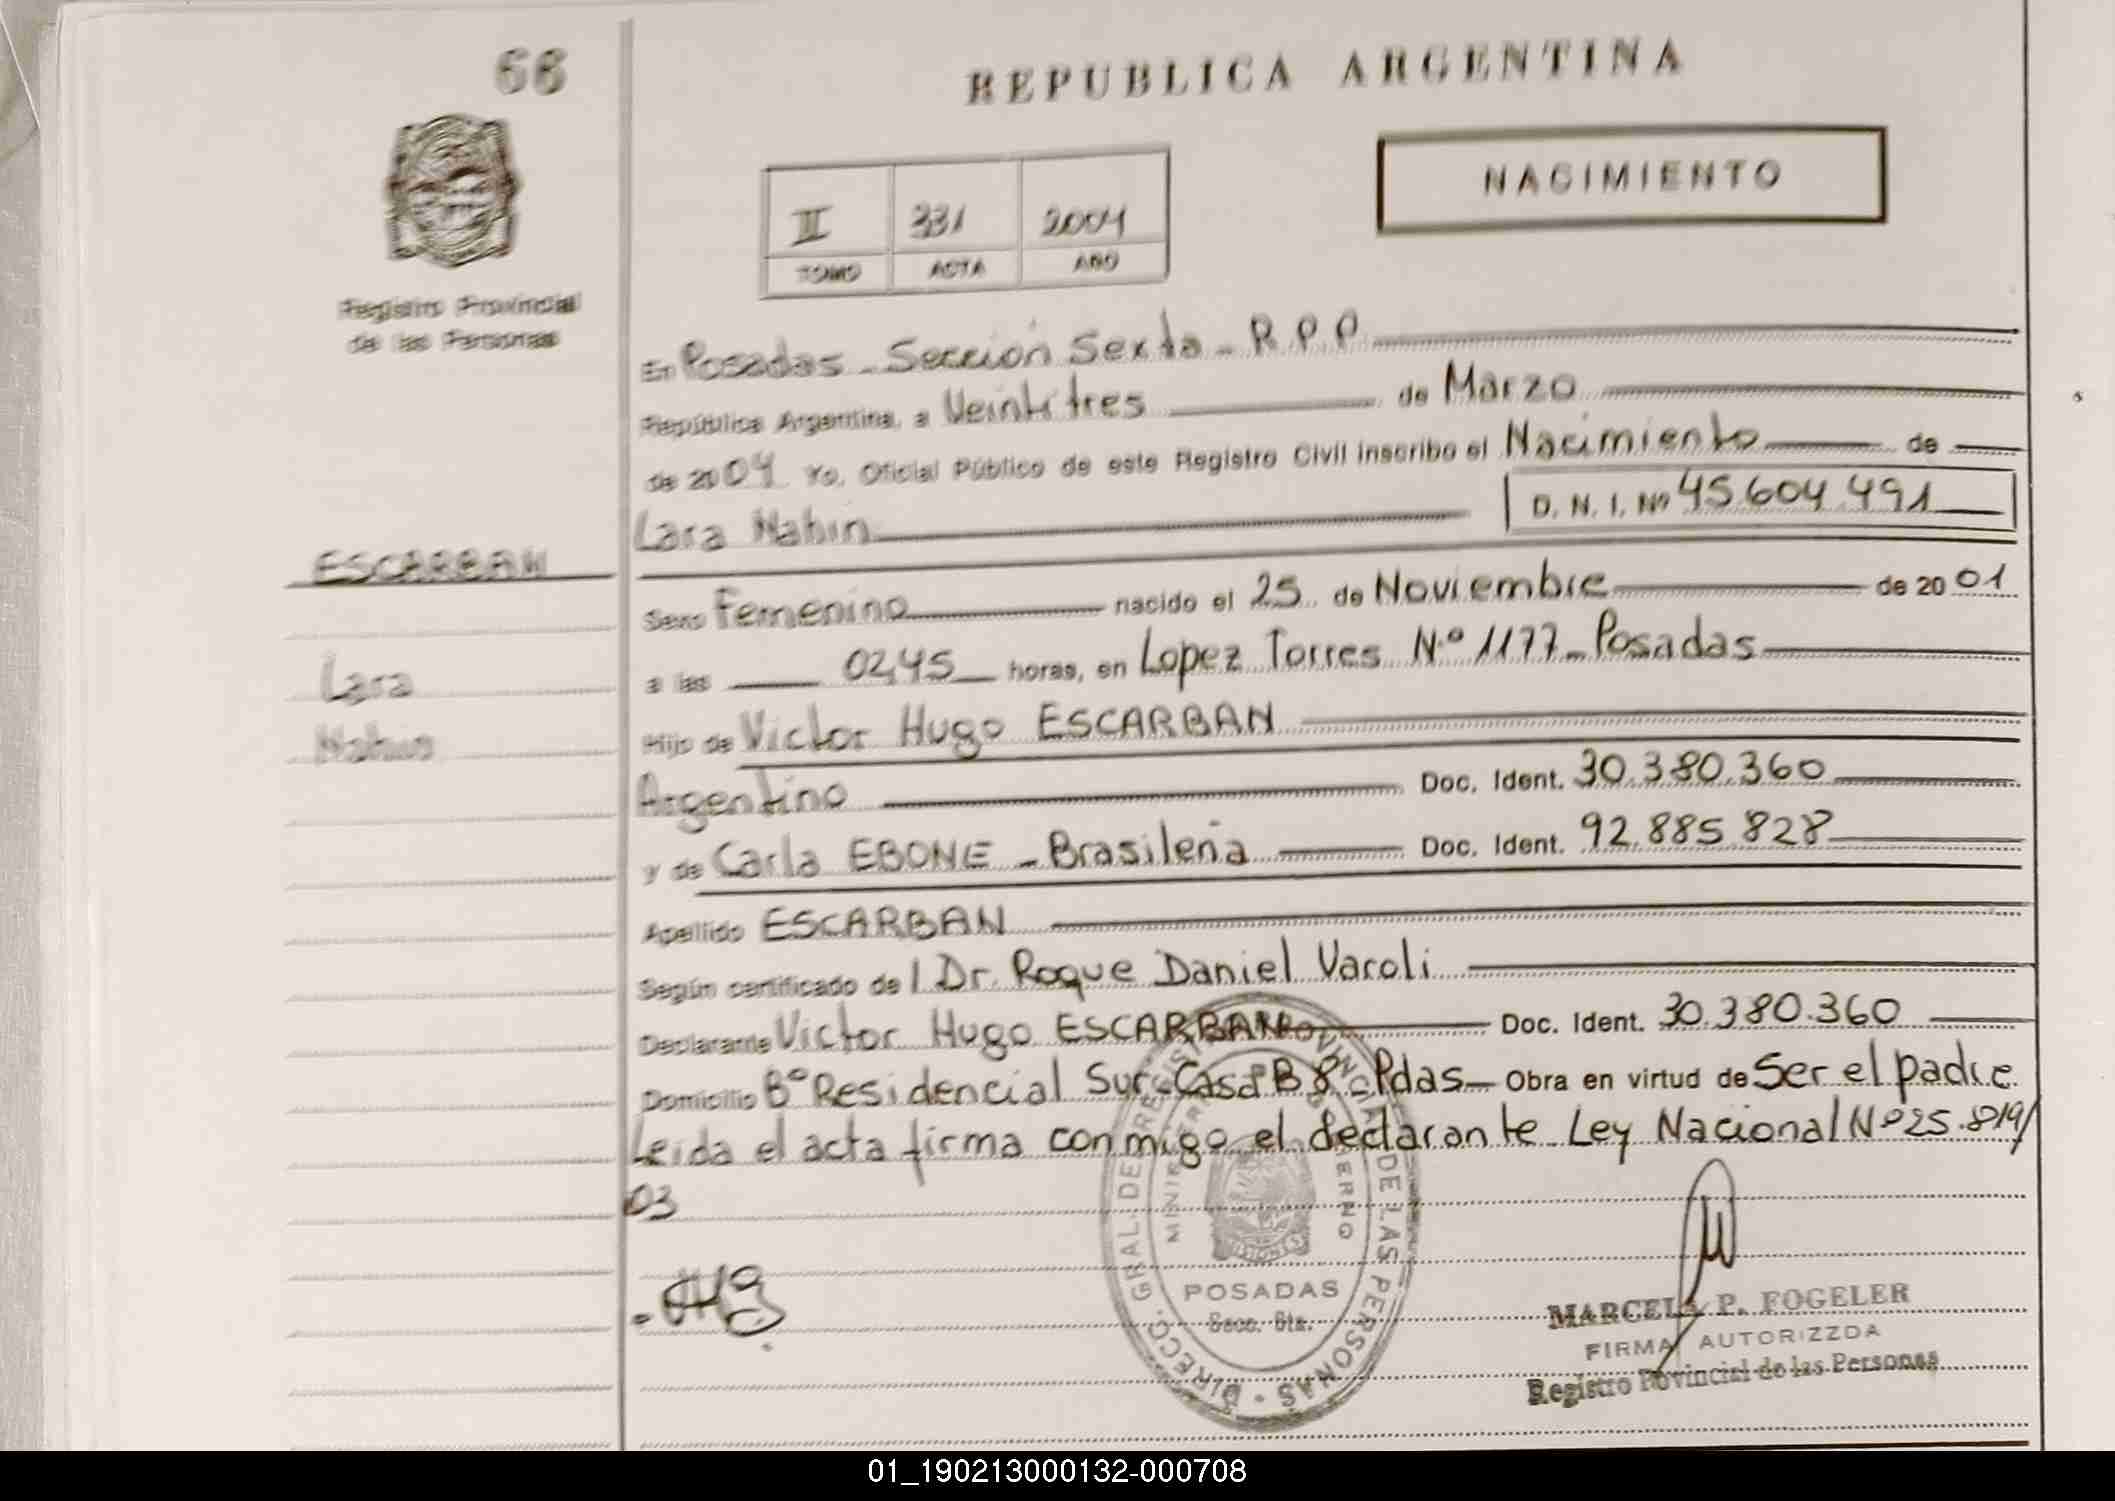 66
REPUBLICA ARGENTINA
NACIMIENTO
II 331 2004
TOMO ACTA AÑO
Registro Provincial
de las Personas
En Posadas - Sección Sexta - R.P.P.
República Argentina, a Veintitres de Marzo
de 2004 Yo, Oficial Público de este Registro Civil inscribo el Nacimiento de
Lara Nahin D. N. I. Nº 45.604.491
ESCARBAN
Sexo Femenino nacido el 25 de Noviembre de 2001
Lara
a las 02,45 horas, en Lopez Torres N.º 1177 - Posadas
Nahin
Hijo de Victor Hugo ESCARBAN
Argentino Doc. Ident. 30.380.360
y de Carla EBONE - Brasileña Doc. Ident. 92.885.828
Apellido ESCARBAN
Según certificado de l Dr. Roque Daniel Varoli
Declarante Victor Hugo ESCARBAN Doc. Ident. 30.380.360
Domicilio Bº Residencial Sur - Casa B 8 - Pdas - Obra en virtud de Ser el padre
Leida el acta firma conmigo el declarante Ley Nacional Nº 25.819/
03
DIRECC. GRAL. DE REGISTRO PROVINCIAL DE LAS PERSONAS
MISIONES
POSADAS
Secc. 6ta.
MARCELA P. FOGELER
FIRMA AUTORIZZDA
Registro Povincial de las Personas
01_190213000132-000708